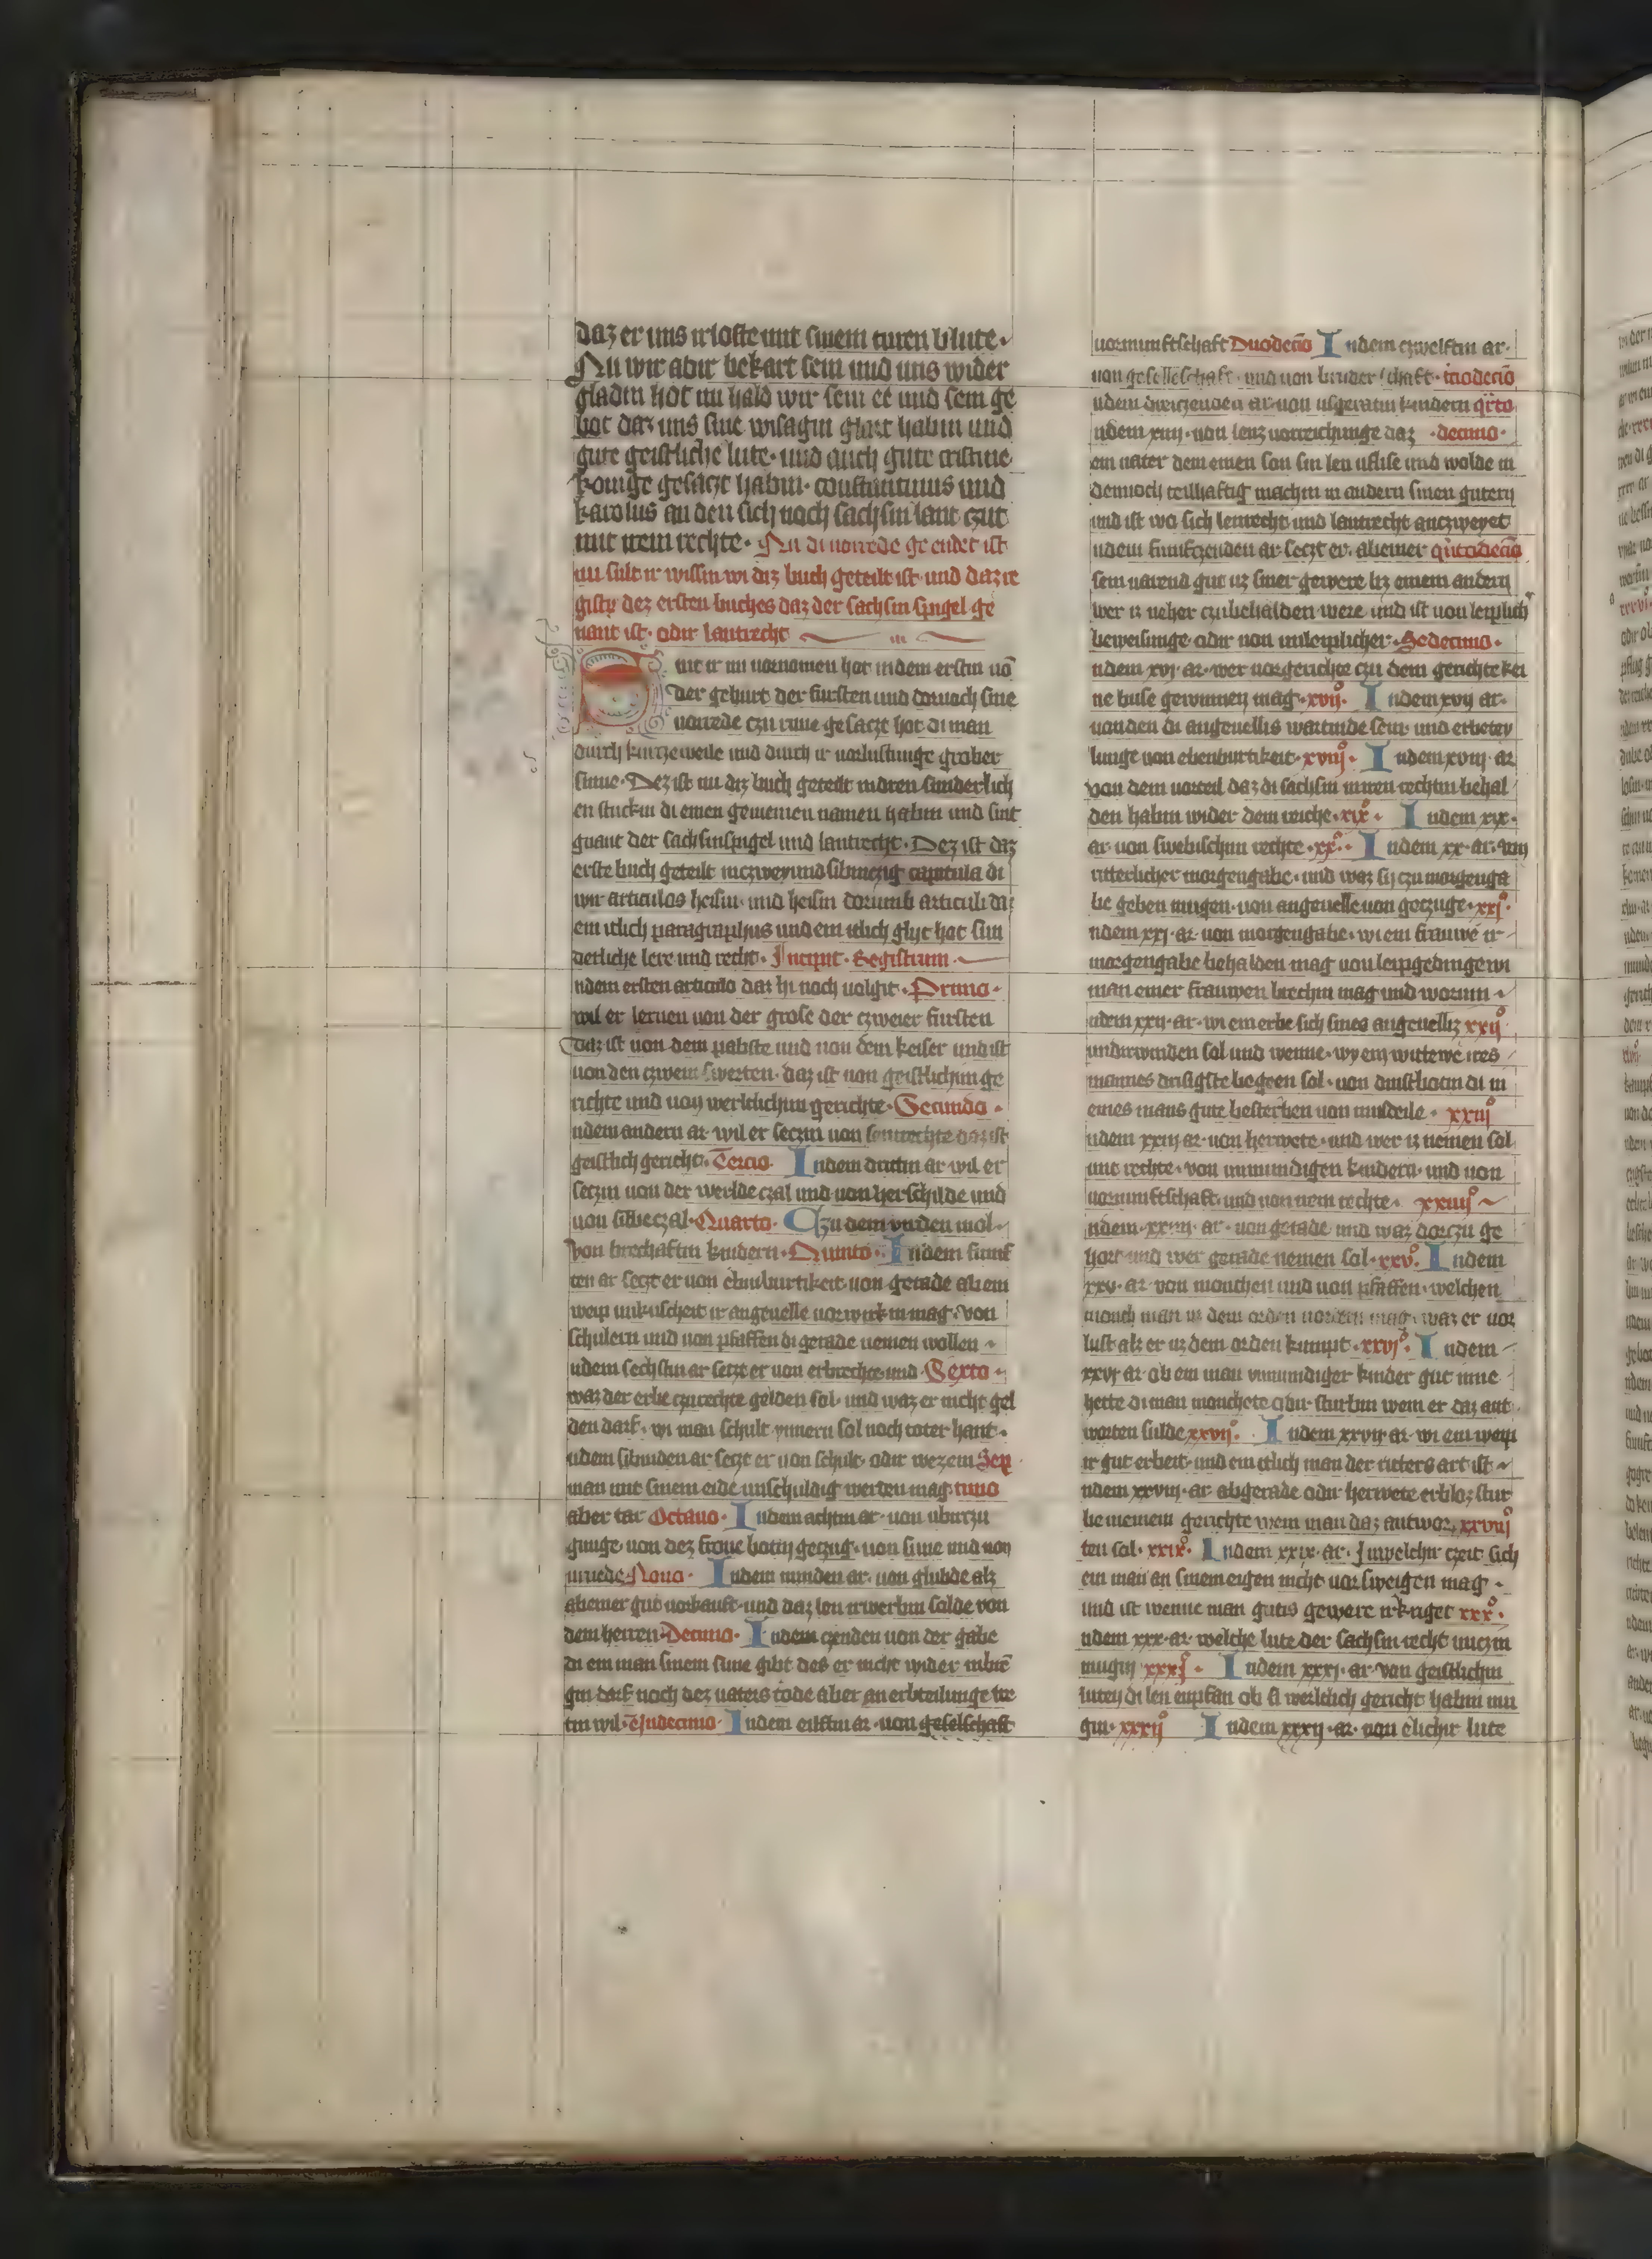 daz er uns irloste mit sinem turen blute·
Nu wir abir bekart sein und uns wider
gladin hot nu hald wir sein ee und sein ge
bot daz uns sine wisagin glart habin und
gute geistliche lute· und auch gute cristine
konige gesaczt habin· constantinus und
karolus an den sich noch sachsin lant czut
mit irem rechte· Nu di vorrede ge endet ist
nu sult ir wissin wi diz buch geteilt ist und daz re
gistr dez ersten buches daz der sachsin spigel ge
nant ist· odir lantrecht
ir ir nu vornomen hot indem erstin vō
der geburt der fursten und dornach sine
vorrede czu rime gesaczt hot di man
durch kurczeweile und durch ir vorlustunge grober
sinne· Dez ist nu diz buch geteilt indren sunderlich
en stuckin di einen gemeinen namen habin und sint
gnant der sachsinspigel und lantrecht· Dez ist daz
erste buch geteilt inczweyundsibinczig capitula di
wir articulos heisin· und heisin dorumb articuli daz
ein itlich paragraphus und ein itlich glyt hot sun
derliche lere und recht· Incipit· Registrum·
ndem ersten articulo daz hi noch volgit· Primo·
wil er lernen von der grose der czweier fursten
daz ist von dem pabste und von dem keiser und ist
von den czwein swerten· daz ist von geistlichim ge
richte und von werltlichim gerichte· Secundo·
ndem andern ar· wil er seczin von sentrechte daz ist
geistlich gericht· Tercio· Indem dritin ar wil er
seczin von der werlde czal und von herschilde und
von sibbeczal· Quarto· Czu dem virden mol
von brechaftin kindern· Quinto· Indem funf
ten ar seczt er von ebinburtikeit von gerade ab ein
weip unkuscheit ir angevelle vorwirkin mag· von
schulern und von pfaffen di gerade nemen wollen
ndem sechstin ar setzt er von erbrechte und· Sexto·
waz der erbe czurechte gelden sol· und waz er nicht gel
den darf· wi man schult ynnern sol noch toter hant·
ndem sibinden ar seczt er von schult· odir wez ein Sep
man mit sinem eide unschuldig werden mag· timo
aber tar Octavo· Indem achtin ar· von uberczu
gunge· von dez frone botin geczug· von sune und von
urvede· Nono· Indem nunden ar· von glubde alz
ab einer gut vorkauft· und daz len irwerbin solde von
dem herren· Decimo· Indem czenden von der gabe
di ein man sinem sune gibt des er nicht wider inbrē
gin darf noch dez vaters tode aber an erbteilunge tre
tin wil· Undecimo· Indem eilftin ar· von geselschaft
vormuntschaft Duodecīo Indem czwelftin ar·
von geselleschaft· und von bruderschaft· t̄iodecīo
ndem dreiczenden ar· von usgeratin kindern qrto
ndem xiiij· von lenz vorreichunge daz ·decimo·
ein vater dem einen son sin len uflise und wolde in
dennoch teilhaftig machin in andern sinen gutern
und ist wo sich lenrecht und lantrecht anczweyet
ndem funfczenden ar seczt er· ab einer qi̇todecīo
sein varend gut uz siner gewere biz einem andern
wer iz neher czubehalden were und ist von leiplich
beweisunge· odir von unleiplicher· Sedecimo·
ndem xvj· ar· wer vorgerichte czu dem gerichte kei
ne buse gewinnen mag· xvij· Indem xvij ar·
von den di angevellis wartinde sein· und erbetey
lunge von ebenburtikeit· xviij· Indem xviij· ar
von dem vorteil daz di sachsin iniren rechtin behal
den habin wider dem reiche· xix· Indem xix·
ar· von swebischin rechte· xx· Indem xx· ar· von
ritterlicher morgengabe· und waz sy czu morgenga
be geben mugen· von angevelle von geczuge· xxj·
ndem xxj· ar· von morgengabe· wi ein frauwe ir
morgengabe behalden mag von leipgedinge wi
man einer frauwen brechin mag und worinn
ndem xxij· ar· wi ein erbe sich sines angevelliz xxij
underwinden sol und wenne· wy ein witewe ires
mannes drisigste begeen sol· von dinstbotin di in
eines mans gute besterben von musteile· xxiij
ndem xxiij ar· von herwete· und wer iz nemen sol
mit rechte· von unmundigen kindern· und von
vormuntschaft· und von irem rechte· xxiiij
ndem· xxiiij· ar· von gerade und waz dorczu ge
hort und wer gerade nemen sol· xxv· Indem
xxv· ar· von monchen und von pfaffen· welchen
monch man uz dem orden vordern mag· waz er vor
lust alz er uz dem orden kumpt· xxvj· Indem
xxvj ar· ob ein man unmundiger kinder gut inne
hette di man monchete odir sturbin wem er daz ant
worten sulde xxvij· Indem xxvij ar· wi ein weip
ir gut erbeit· und ein itlich man der ritters art ist
ndem xxviij· ar· ab gerade odir herwete erbloz stur
be in einem gerichte wem man daz antwor· xxviij
ten sol· xxix· Indem xxix· ar· Inwelchir czeit sich
ein man an sinem eigen nicht vorsweigen mag·
und ist wenne man gutis gewere irkriget xxx·
ndem xxx· ar· welche lute der sachsin recht nuczin
mugin xxxj· Indem xxxj· ar· von geistlichin
lutey di len enpfan ob si werltlich gericht habin mu
gin· xxxij Indem xxxij· ar· von elichir lute